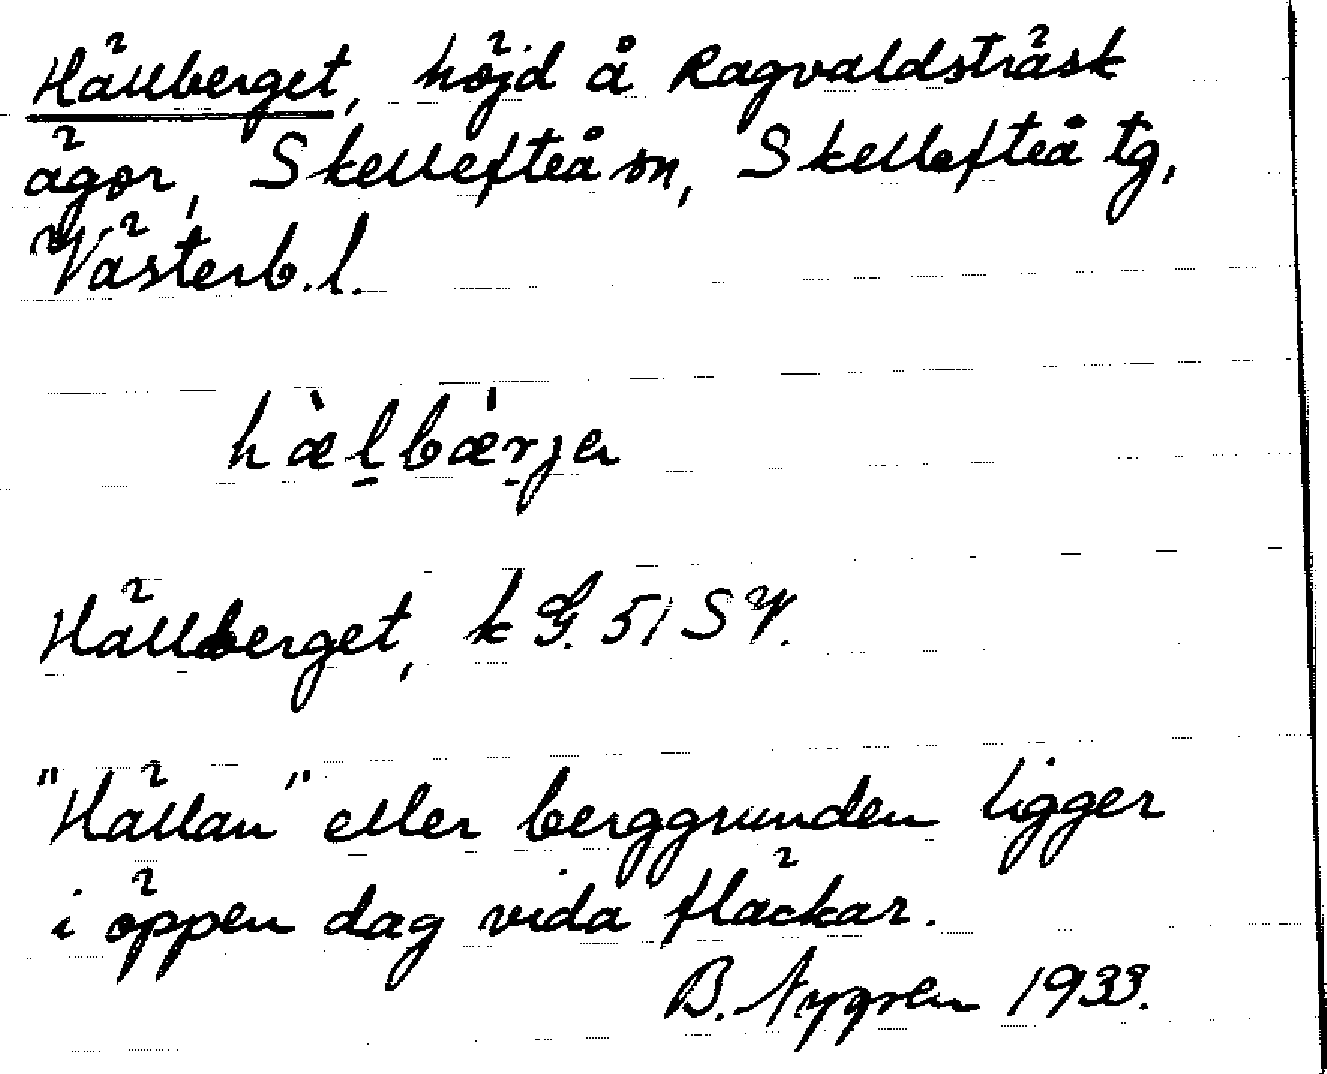 Hällberget, höjd å Ragvaldsträsk
ägor, Skellefteå sn, Skellefteå tg,
Västerb. l.
hæ̀l̠bæ̀r̠ja
Hällberget, k G. 51 SV.
"Hällan" eller berggrunden ligger
i öppen dag vida fläckar.
B. Nygren 1933.